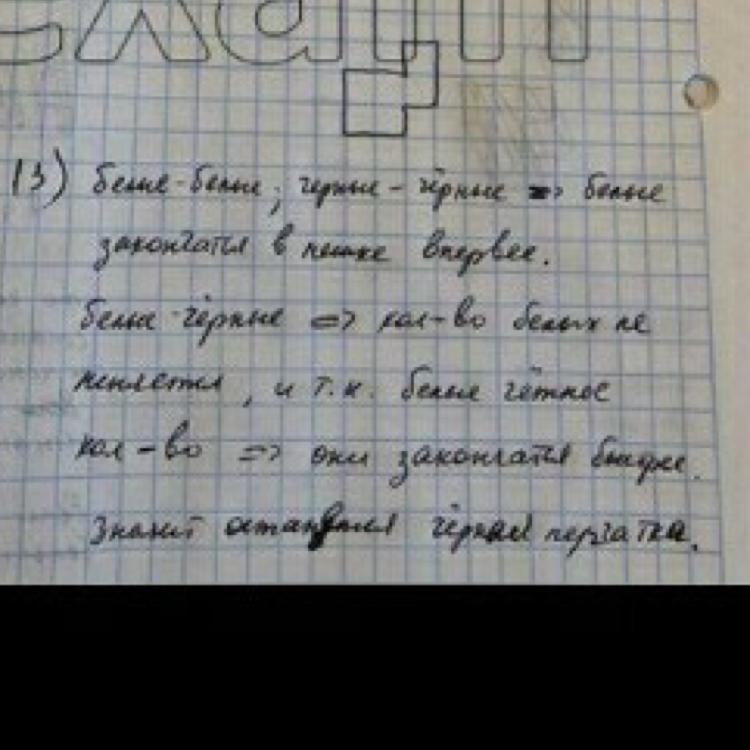 13) белые-белые; черные - чёрные => белые
закончатся в мешке впервее.
белые чёрные => кол-во белых не
меняется, и т.к. белые чётное
кол-во => они закончатся быстрее.
Значит останется чёрная перчатка.